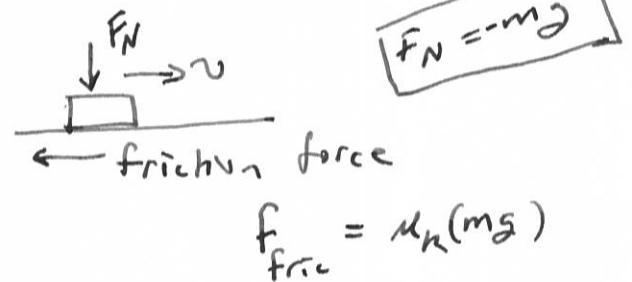 F_N
F_N = -mg
v
← friction force
f_fric = μ_k(mg)